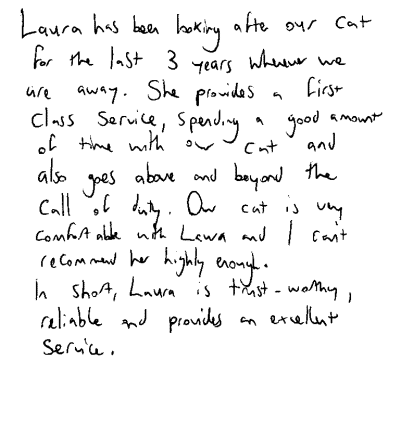 Laura has been looking after our cat
for the last 3 years whenever we
are away. She provides a first
class service, spending a good amount
of time with our cat and
also goes above and beyond the
call of duty. Our cat is very
comfortable with Laura and I can't
recommend her highly enough.
In short, Laura is trust-worthy,
reliable and provides an excellent
service.